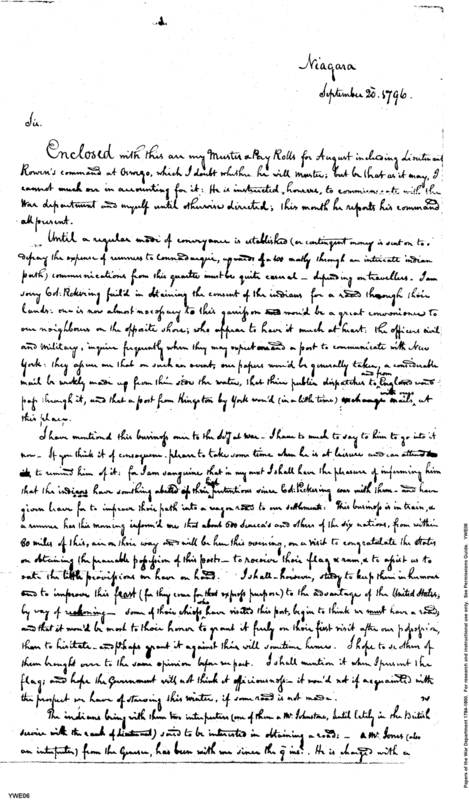 1.
Niagara
September 20. 1796.
Sir.
Enclosed with this are my Muster & Pay Rolls for August including Lieutenant
Rowen's command at Oswego, which I doubt whether he will muster; but be that as it may, I
cannot much err in accounting for it: He is instructed, however, to communicate with the
War department and myself until otherwise directed; this month he reports his command
all present.
Until a regular mode of conveyance is established (or contingent money is sent on to
defray the expense of runners to Connadarquie, upwards of a 100 mostly through an intricate indian
path) communications from this quarter must be quite casual — depending on travellers. I am
sorry Col. Pickering fail'd in obtaining the consent of the indians for a road through their
lands: one is now almost necessary to this garrison and would be a great convenience to
our neighbours on the opposite shore; who appear to have it much at heart. The officers civil
and Military, inquire frequently when they may expect a post to communicate with New
York: they assure me that on such an event, our papers would be generally taken, a considerable
mail be weekly made up from this side the water, that their public dispatches to and from England would
pass through it, and that a post from Kingston by York would (in a little time) exchange mails at
this place.
I have mentioned this business once to the Secy at War — I have too much to say to him to go into it
now — If you think it of consequence, please to take some time when he is at leisure and can attend
to remind him of it: for I am sanguine that in my next I shall have the pleasure of informing him
that the indians have something abated of their pretentions since Col. Pickering was with them — and have
given leave for to improve their path into a waggon road to our settlements: This business is in train, &
a runner has this morning inform'd me that about 600 Seneca's and others of the six nations, from within
80 miles of this, are on their way and will be here this evening, on a visit to congratulate the States
on obtaining the peaceable possession of this post — to receive their flag & rum, & to assist us to
eat the little provisions we have on hand. I shall, however, study to keep them in humour
and to improve this (for they come for that express purpose) to the advantage of the United States,
by way of reckoning — Some of their chiefs who have visited this post, begin to think we must have a road,
and that it would be most to their honor to grant it freely on their first visit after our possession,
than to hesitate — and perhaps grant it against their will sometime hence. I hope to see others of
them brought over to the same opinion before we part. I shall mention it when I present the
flag; and hope the Government will not think it officiousness — it would not if acquainted with
the prospect we have of starving this winter, if some road is not made.
The indians bring with them two interpreters (one of them a Mr. Johnstone, until lately in the British
service with the rank of Lieutenant) said to be interested in obtaining a road: — a Mr. Jones (also
an interpreter) from the Genesee, has been with me since the inst. He is charged with a
YWE06
Papers of the War Department 1784-1800. For research and instructional use only. See Permissions Guide. YWE06